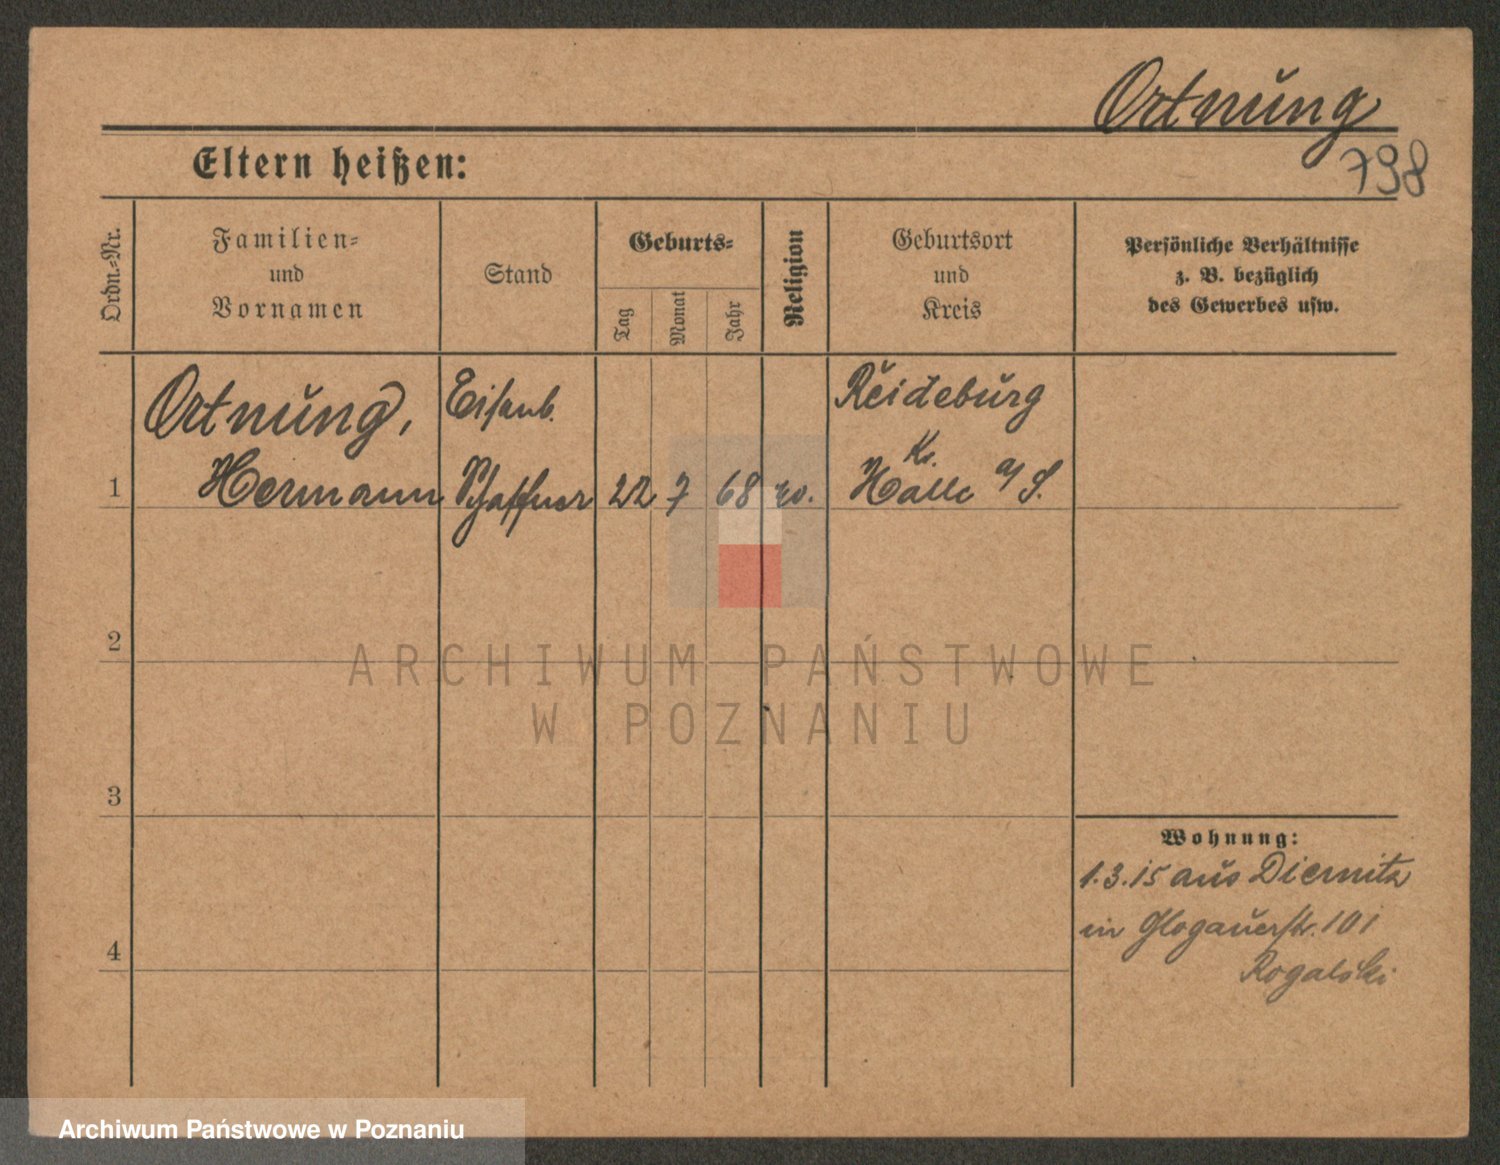 Ortnung
798
Eltern heißen:
Ordn.-Nr.
Familien-
und
Vornamen
Stand
Geburts-
Tag
Monat
Jahr
Religion
Geburtsort
und
Kreis
Persönliche Verhältnisse
z. B. bezüglich
des Gewerbes usw.
Ortnung,
Hermann
Eisenb.
Schaffner
1
22
7
68
ev.
Reideburg
Kr.
Halle a/S.
2
ARCHIWUM PAŃSTWOWE
W POZNANIU
3
Wohnung:
1.3.15 aus Diemitz
in Glogauerstr. 101
Rogalski
4
Archiwum Państwowe w Poznaniu